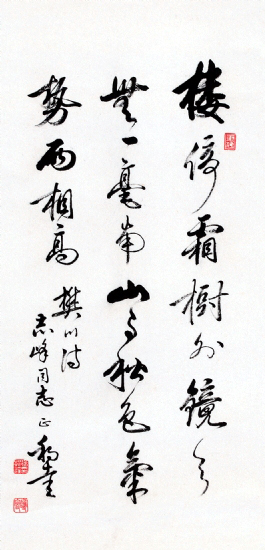 楼倚霜樹外鏡天
無一毫南山与秋色氣
勢兩相高 樊川诗
志峰同志正